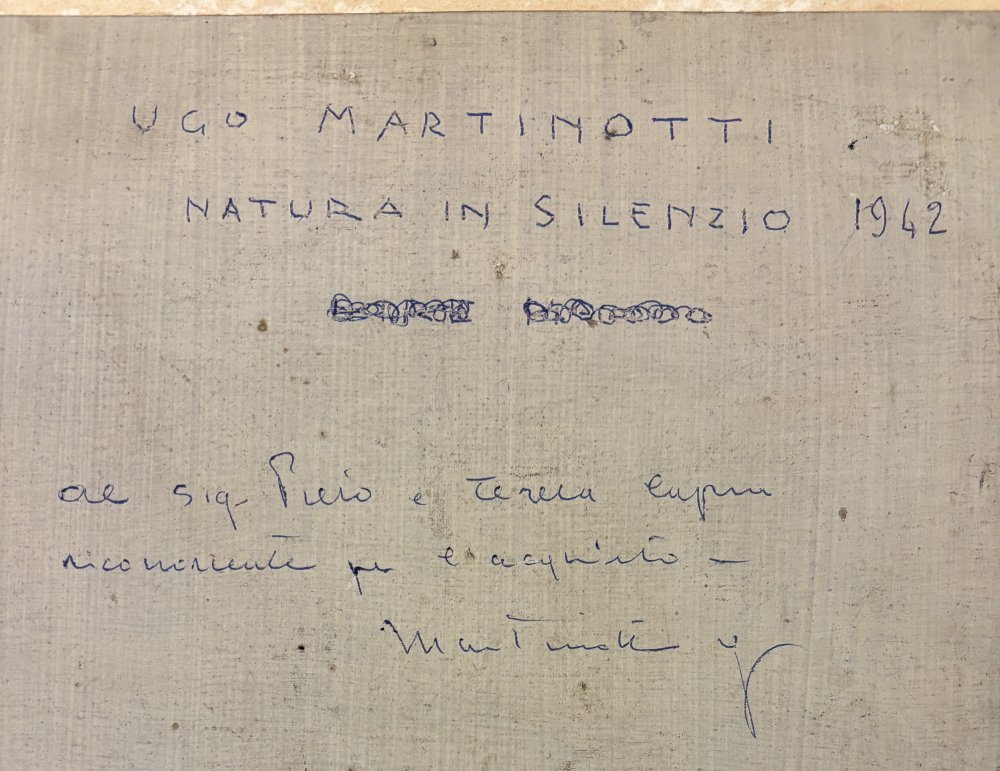 UGO MARTINOTTI
NATURA IN SILENZIO 1942
al sig. Piero e Teresa Capra
riconoscente per l'acquisto –
Martinotti U